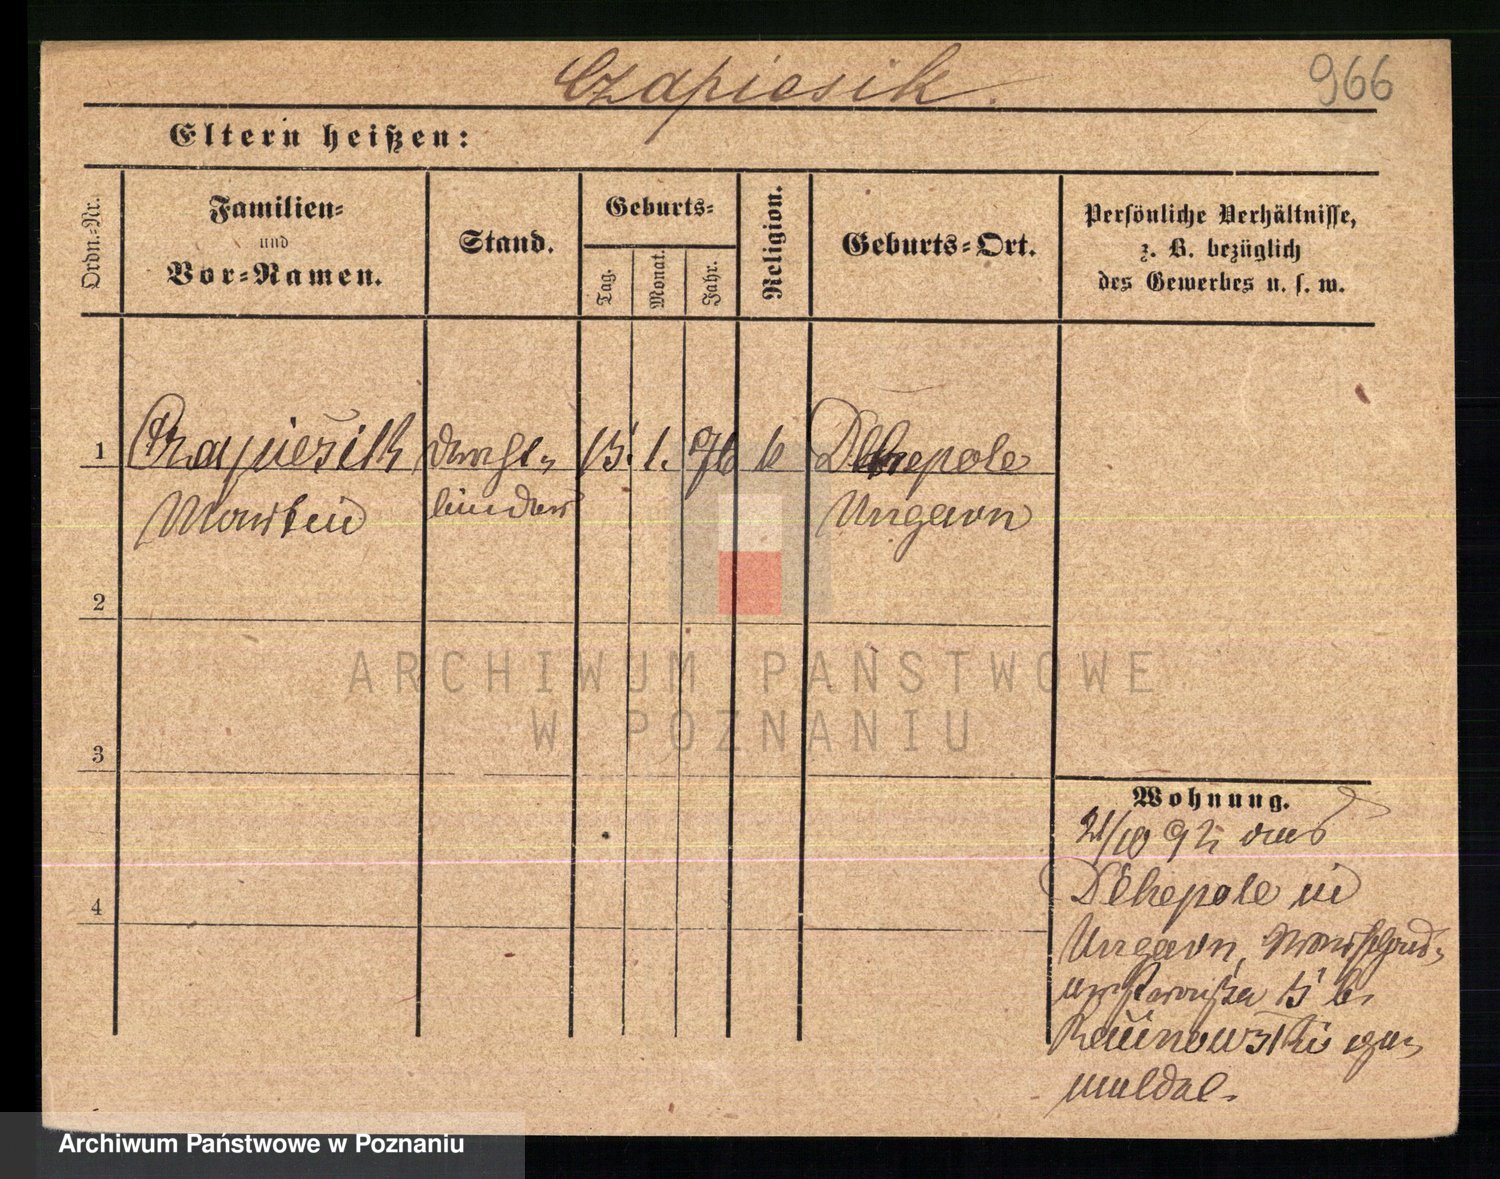 Czapiesik.
966
Eltern heißen:
Ordn.-Nr.
Familien-
und
Vor-Namen.
Stand.
Geburts-
Tag.
Monat.
Jahr.
Religion.
Geburts-Ort.
Persönliche Verhältnisse,
z. B. bezüglich
des Gewerbes u. s. w.
1
Czapiesik
15. 1. 76
Martin
binder
Ungarn
2
3
4
ARCHIWUM PAŃSTWOWE
W POZNANIU
Wohnung.
21/10 92 aus
in
Ungarn,
Archiwum Państwowe w Poznaniu